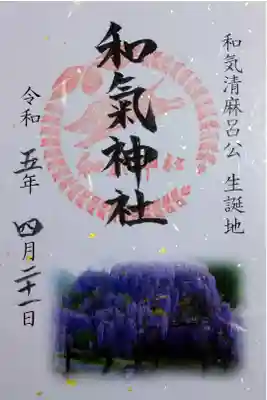 和気清麻呂公 生誕地
和氣神社
令和 五年 四月二十一日